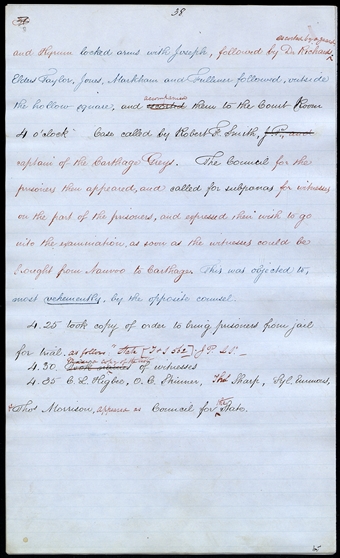 38
escorted by a guard
and Hyrum locked arms with Joseph, followed by Dr Richards,
Elder Taylor, Jones, Markham and Fullmer followed, outside
the hollow square, and accompanied them to the Court Room
4 o'clock Case called by Robert F. Smith, J. P., and
captain of the Carthage Greys. The Council for the
prisoners then appeared, and called for subpanas for witnesses
on the part of the prisoners, and expressed their wish to go
into the examination, as soon as the witnesses could be
brought from Nauvoo to Carthage. This was objected to,
most vehemently, by the opposite counsel.
4.25 took copy of order to bring prisoners from jail
for trial. as follows "State
4.30. Took names of witnesses
4.35 C. L. Higbee, O. C. Skinner, Thos Sharp, Syl. Emmons,
+ Thos Morrison, appeared as Council for the State.